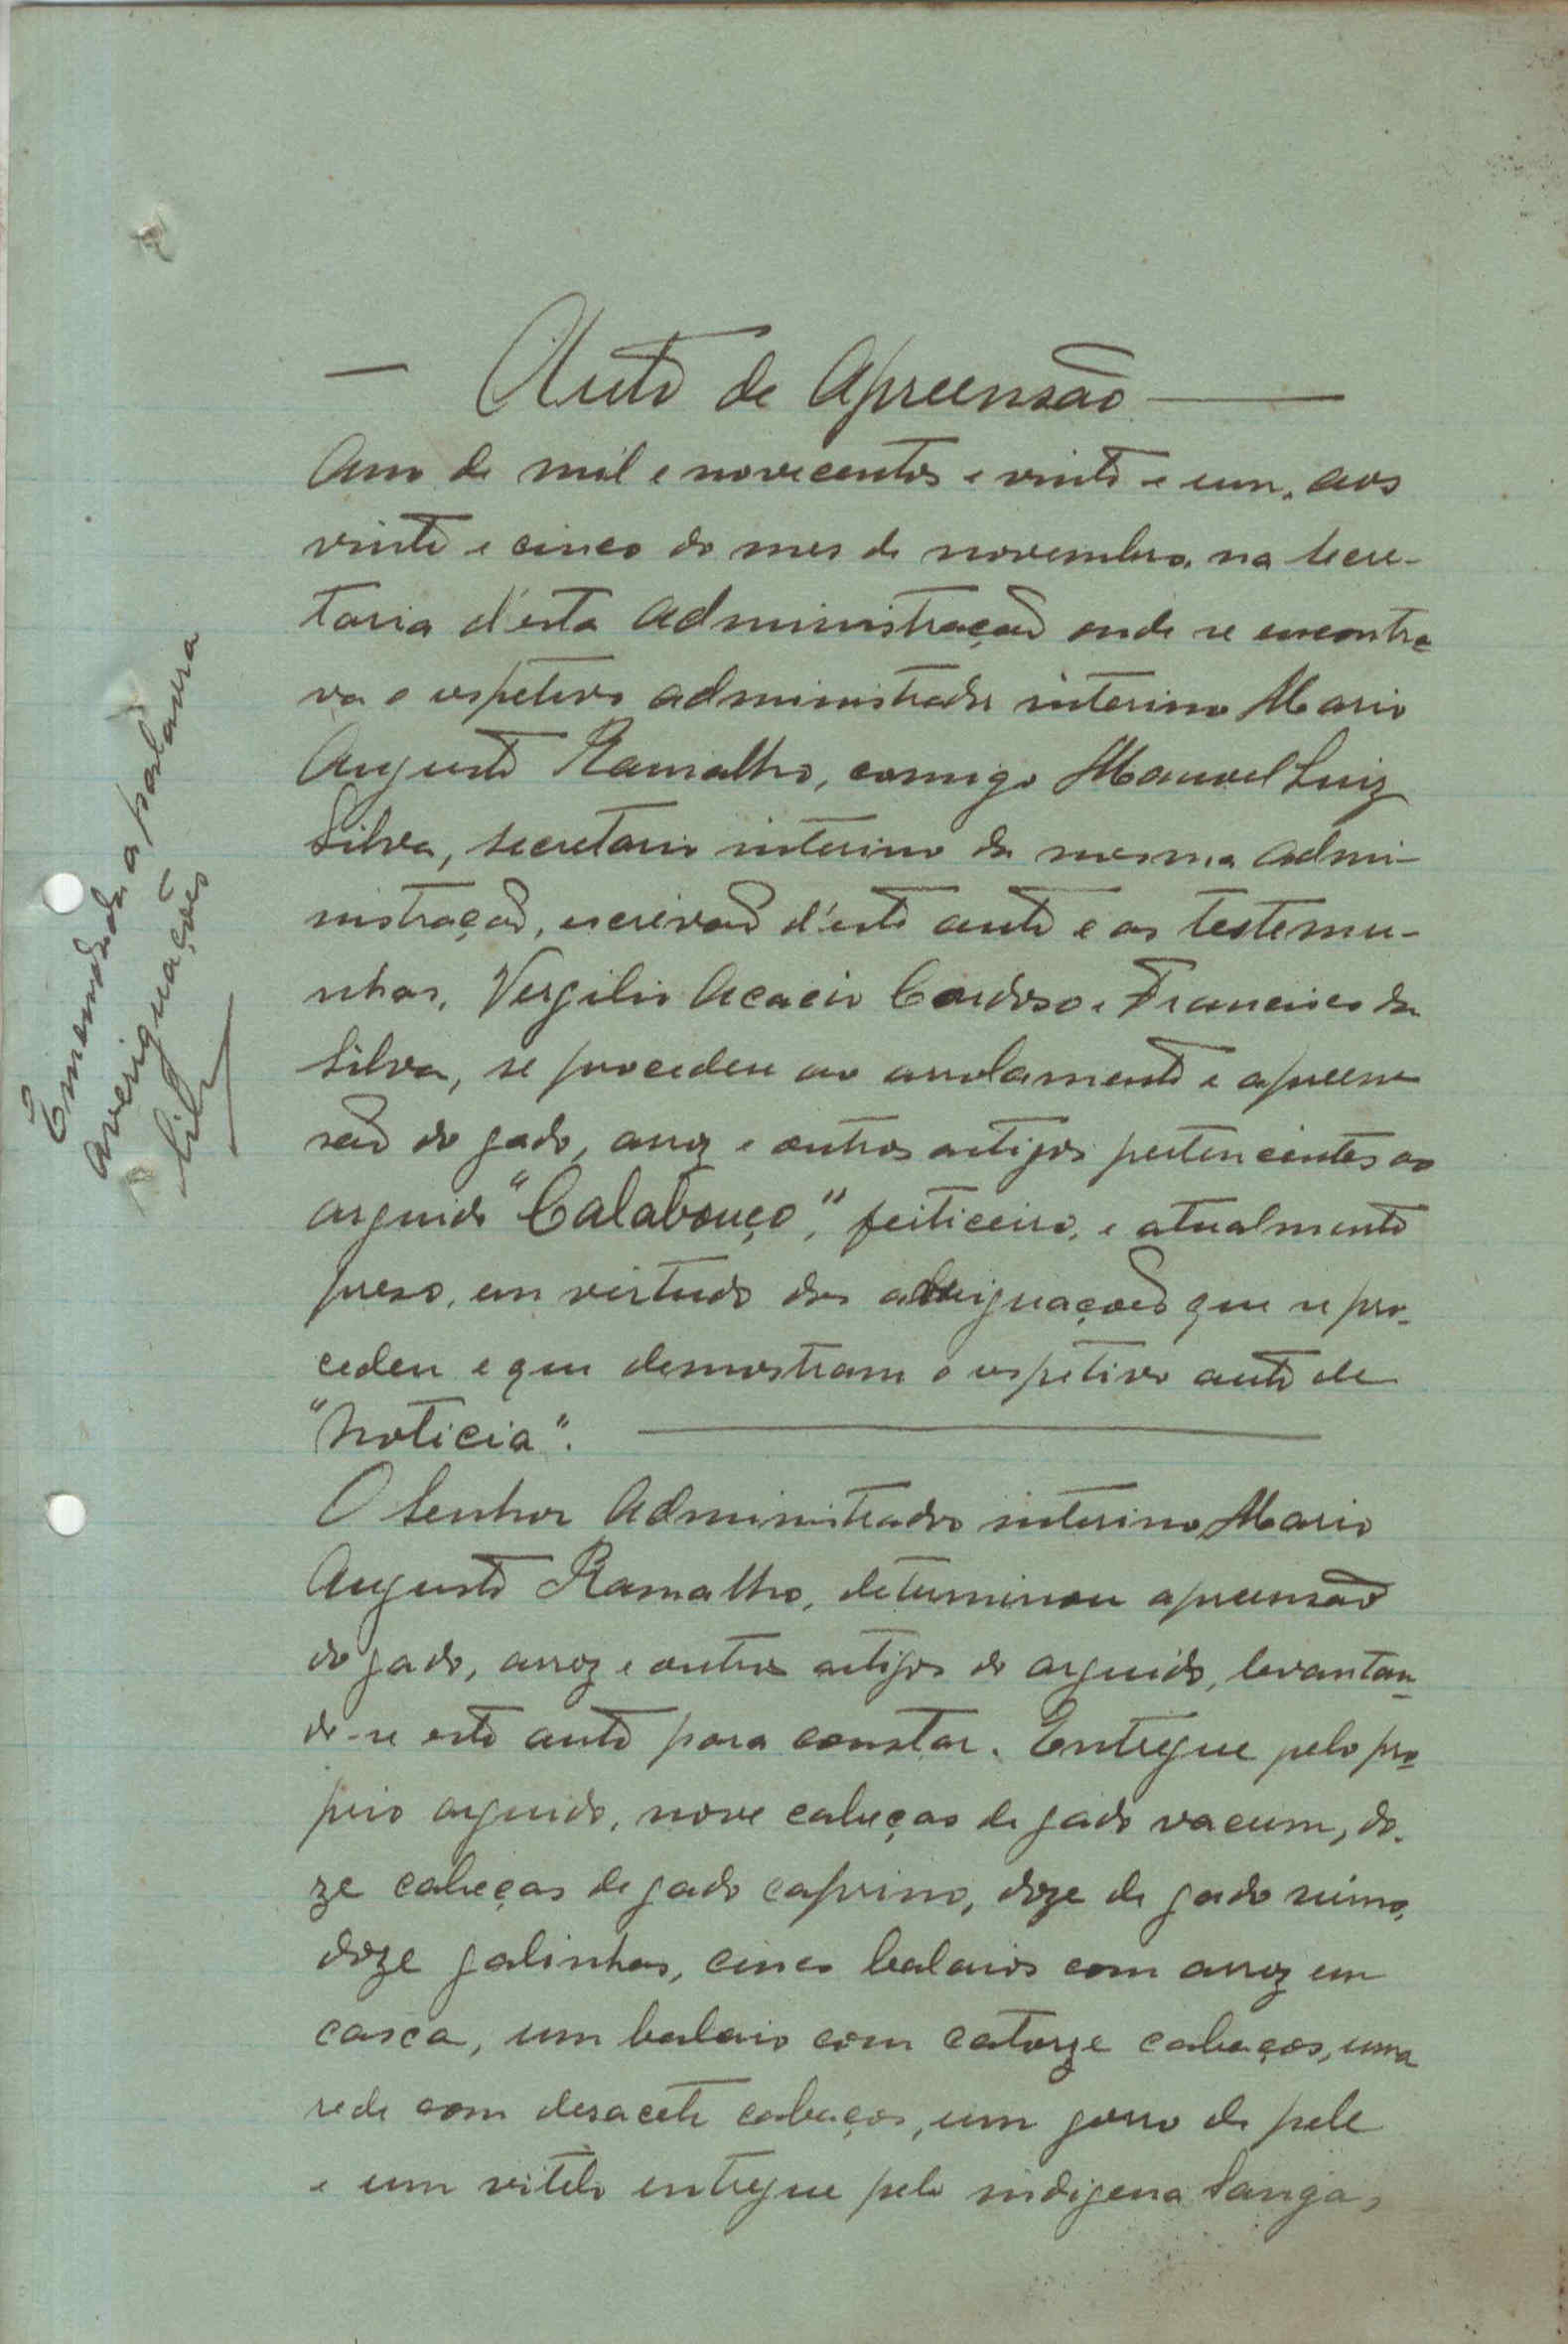 — Auto de Apreensão —
Ano de mil e novecentos e vinte e um, aos
vinte e cinco do mes de novembro, na secre-
taria d'esta Administração onde se encontra-
va o respetivo administrador interino Mario
Augusto Ramalho, comigo Manuel Luiz
Silva, secretario interino da mesma admi-
nistração, escrivão d'este auto e as testemu-
nhas, Vergilio Acacio Cardoso e Francisco da
Silva, se procedeu ao arrolamento e apreen-
são do gado, arroz e outros artigos pertencentes ao
arguido "Calabouço", feiticeiro, e atualmente
preso, em virtude das averiguações que se pro-
cedeu e que demostram o respetivo auto de
"noticia". —
O Senhor Administrador interino Mario
Augusto Ramalho, determinou apreensão
do gado, arroz e outros artigos do arguido, levantan-
do-se este auto para constar. Entregue pelo pro-
prio arguido, nove cabeças de gado vacum, do-
ze cabeças de gado caprino, doze de gado suino,
doze galinhas, cinco balaios com arroz em
casca, um balaio com catorze cabaços, uma
rede com desacete cabaços, um gorro de pele
e um vitelo entregue pelo indigena Sanga,
Emendada a palavra
averiguações
Silva